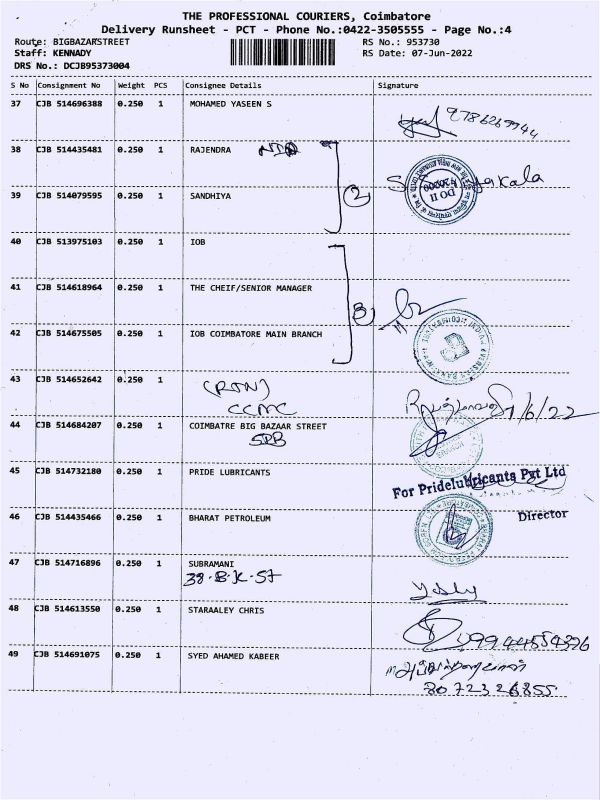 THE PROFESSIONAL COURIERS, Coimbatore
Delivery Runsheet - PCT - Phone No.:0422-3505555 - Page No.:4
Route: BIGBAZARSTREET
RS No.: 953730
Staff: KENNADY
RS Date: 07-Jun-2022
DRS No.: DCJB95373004
S No Consignment No Weight PCS Consignee Details Signature
37 CJB 514696388 0.250 1 MOHAMED YASEEN S
9786269944
38 CJB 514435481 0.250 1 RAJENDRA
39 CJB 514079595 0.250 1 SANDHIYA
2
40 CJB 513975103 0.250 1 IOB
41 CJB 514618964 0.250 1 THE CHEIF/SENIOR MANAGER
3
42 CJB 514675505 0.250 1 IOB COIMBATORE MAIN BRANCH
43 CJB 514652642 0.250 1
(RTN)
CCMC
7/6/22
44 CJB 514684207 0.250 1 COIMBATRE BIG BAZAAR STREET
45 CJB 514732180 0.250 1 PRIDE LUBRICANTS
For Pridelubricants Pvt Ltd
Director
46 CJB 514435466 0.250 1 BHARAT PETROLEUM
47 CJB 514716896 0.250 1 SUBRAMANI
38-B-K-ST
48 CJB 514613550 0.250 1 STARAALEY CHRIS
9944554326
49 CJB 514691075 0.250 1 SYED AHAMED KABEER
8072326855